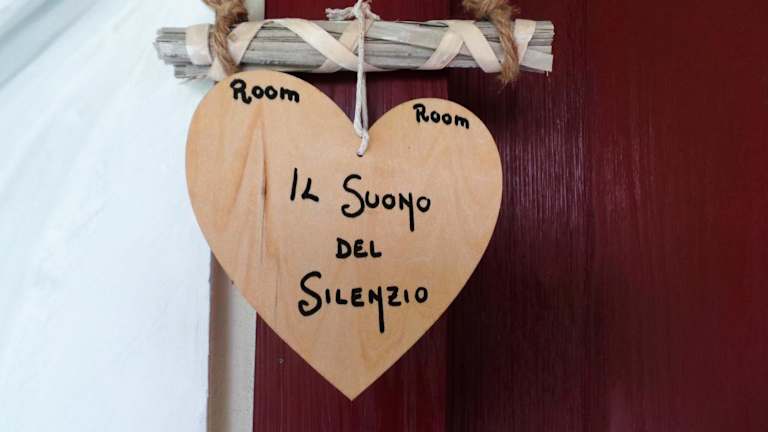 Room Room
IL SUONO
DEL
SILENZIO